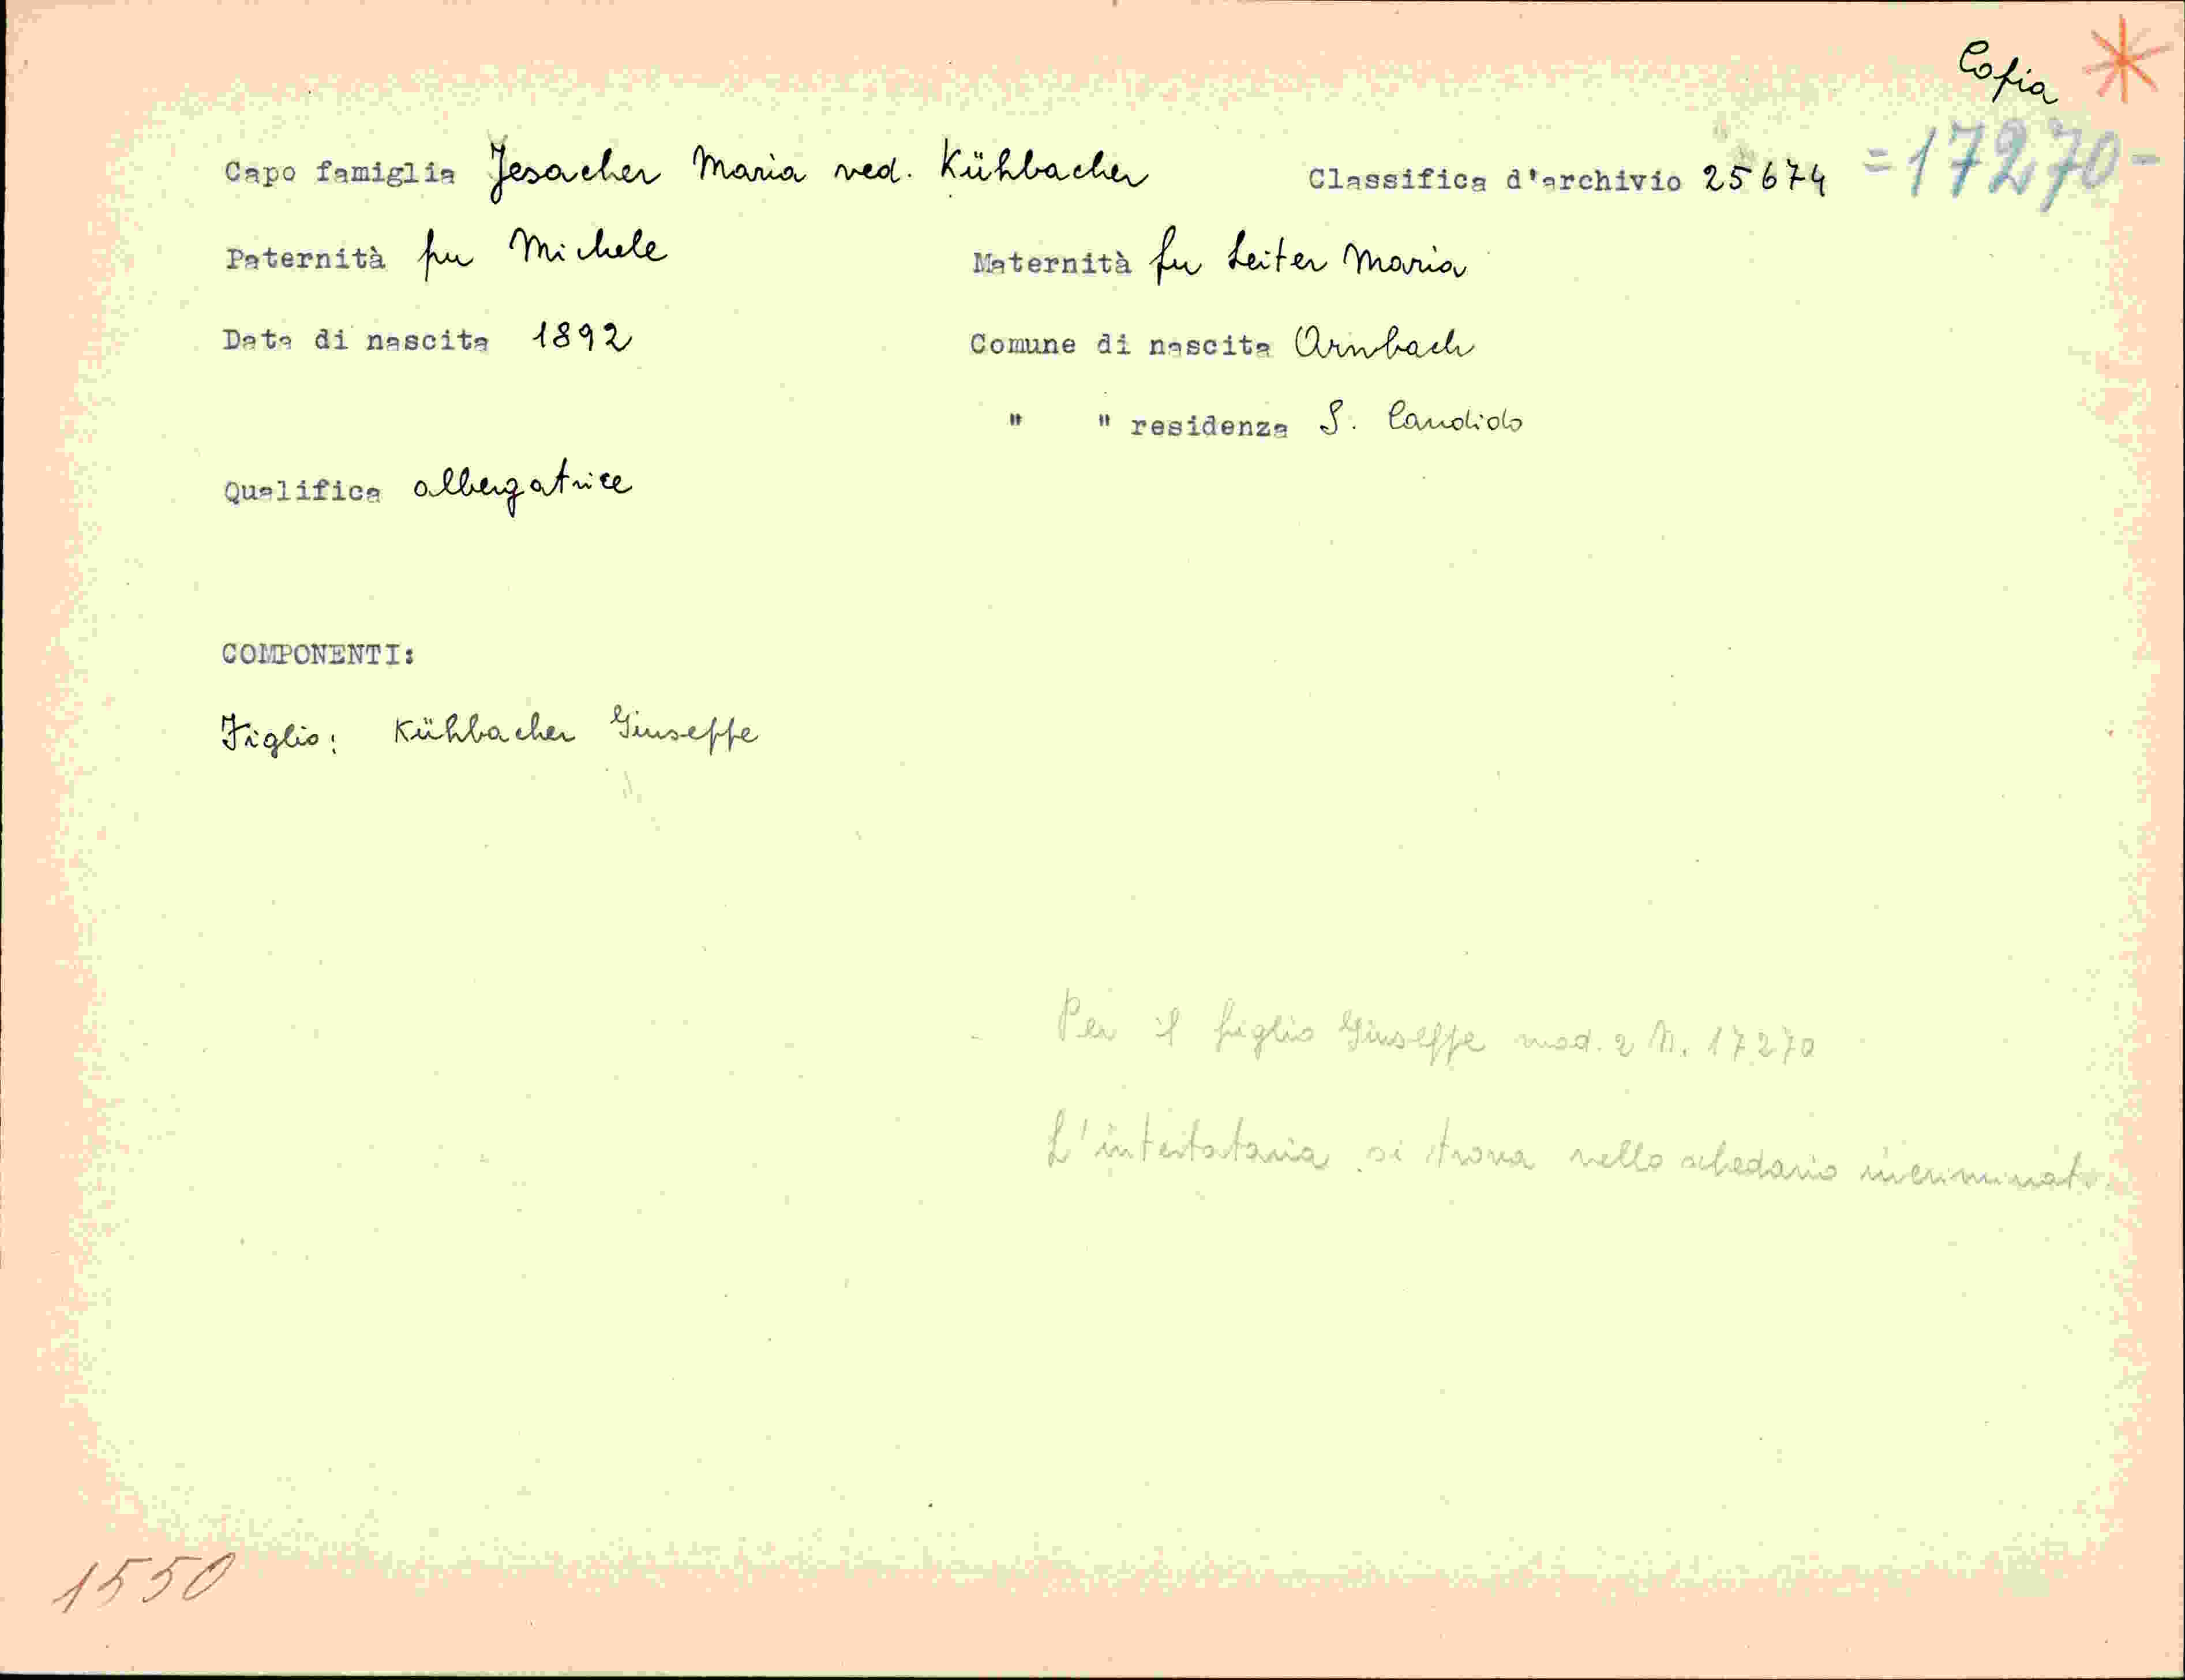 Copia
Capo famiglia Jesacher Maria ved. Kühbacher Classifica d'archivio 25674 =17270-
Paternità fu Michele Maternità fu Leiter Maria
Data di nascita 1892 Comune di nascita Arnbach
" " residenza S. Candido
Qualifica albergatrice
COMPONENTI:
Figlio: Kühbacher Giuseppe
Per il figlio Giuseppe mod. 2 N. 17270
L'intestataria si trova nello schedario incriminato.
1550